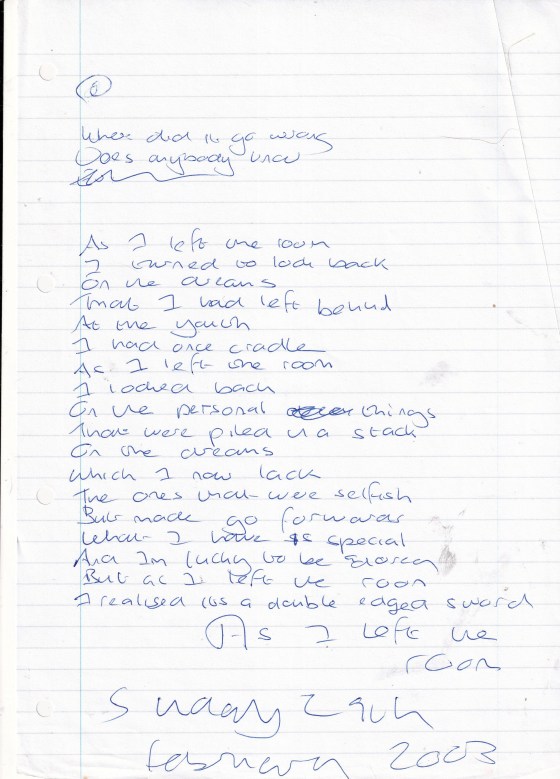 Where did it go wrong
Does anybody know
As I left the room
I turned to look back
On the dreams
That I had left behind
At the youth
I had once cradle
As I left the room
I looked back
On the personal things
That were piled in a stack
On the dreams
Which I now lack
The ones that were selfish
But made go forwards
What I have is special
And Im lucky to be
But as I left the room
I realised its a double edged sword
As I left the
room
Sunday
February 2003